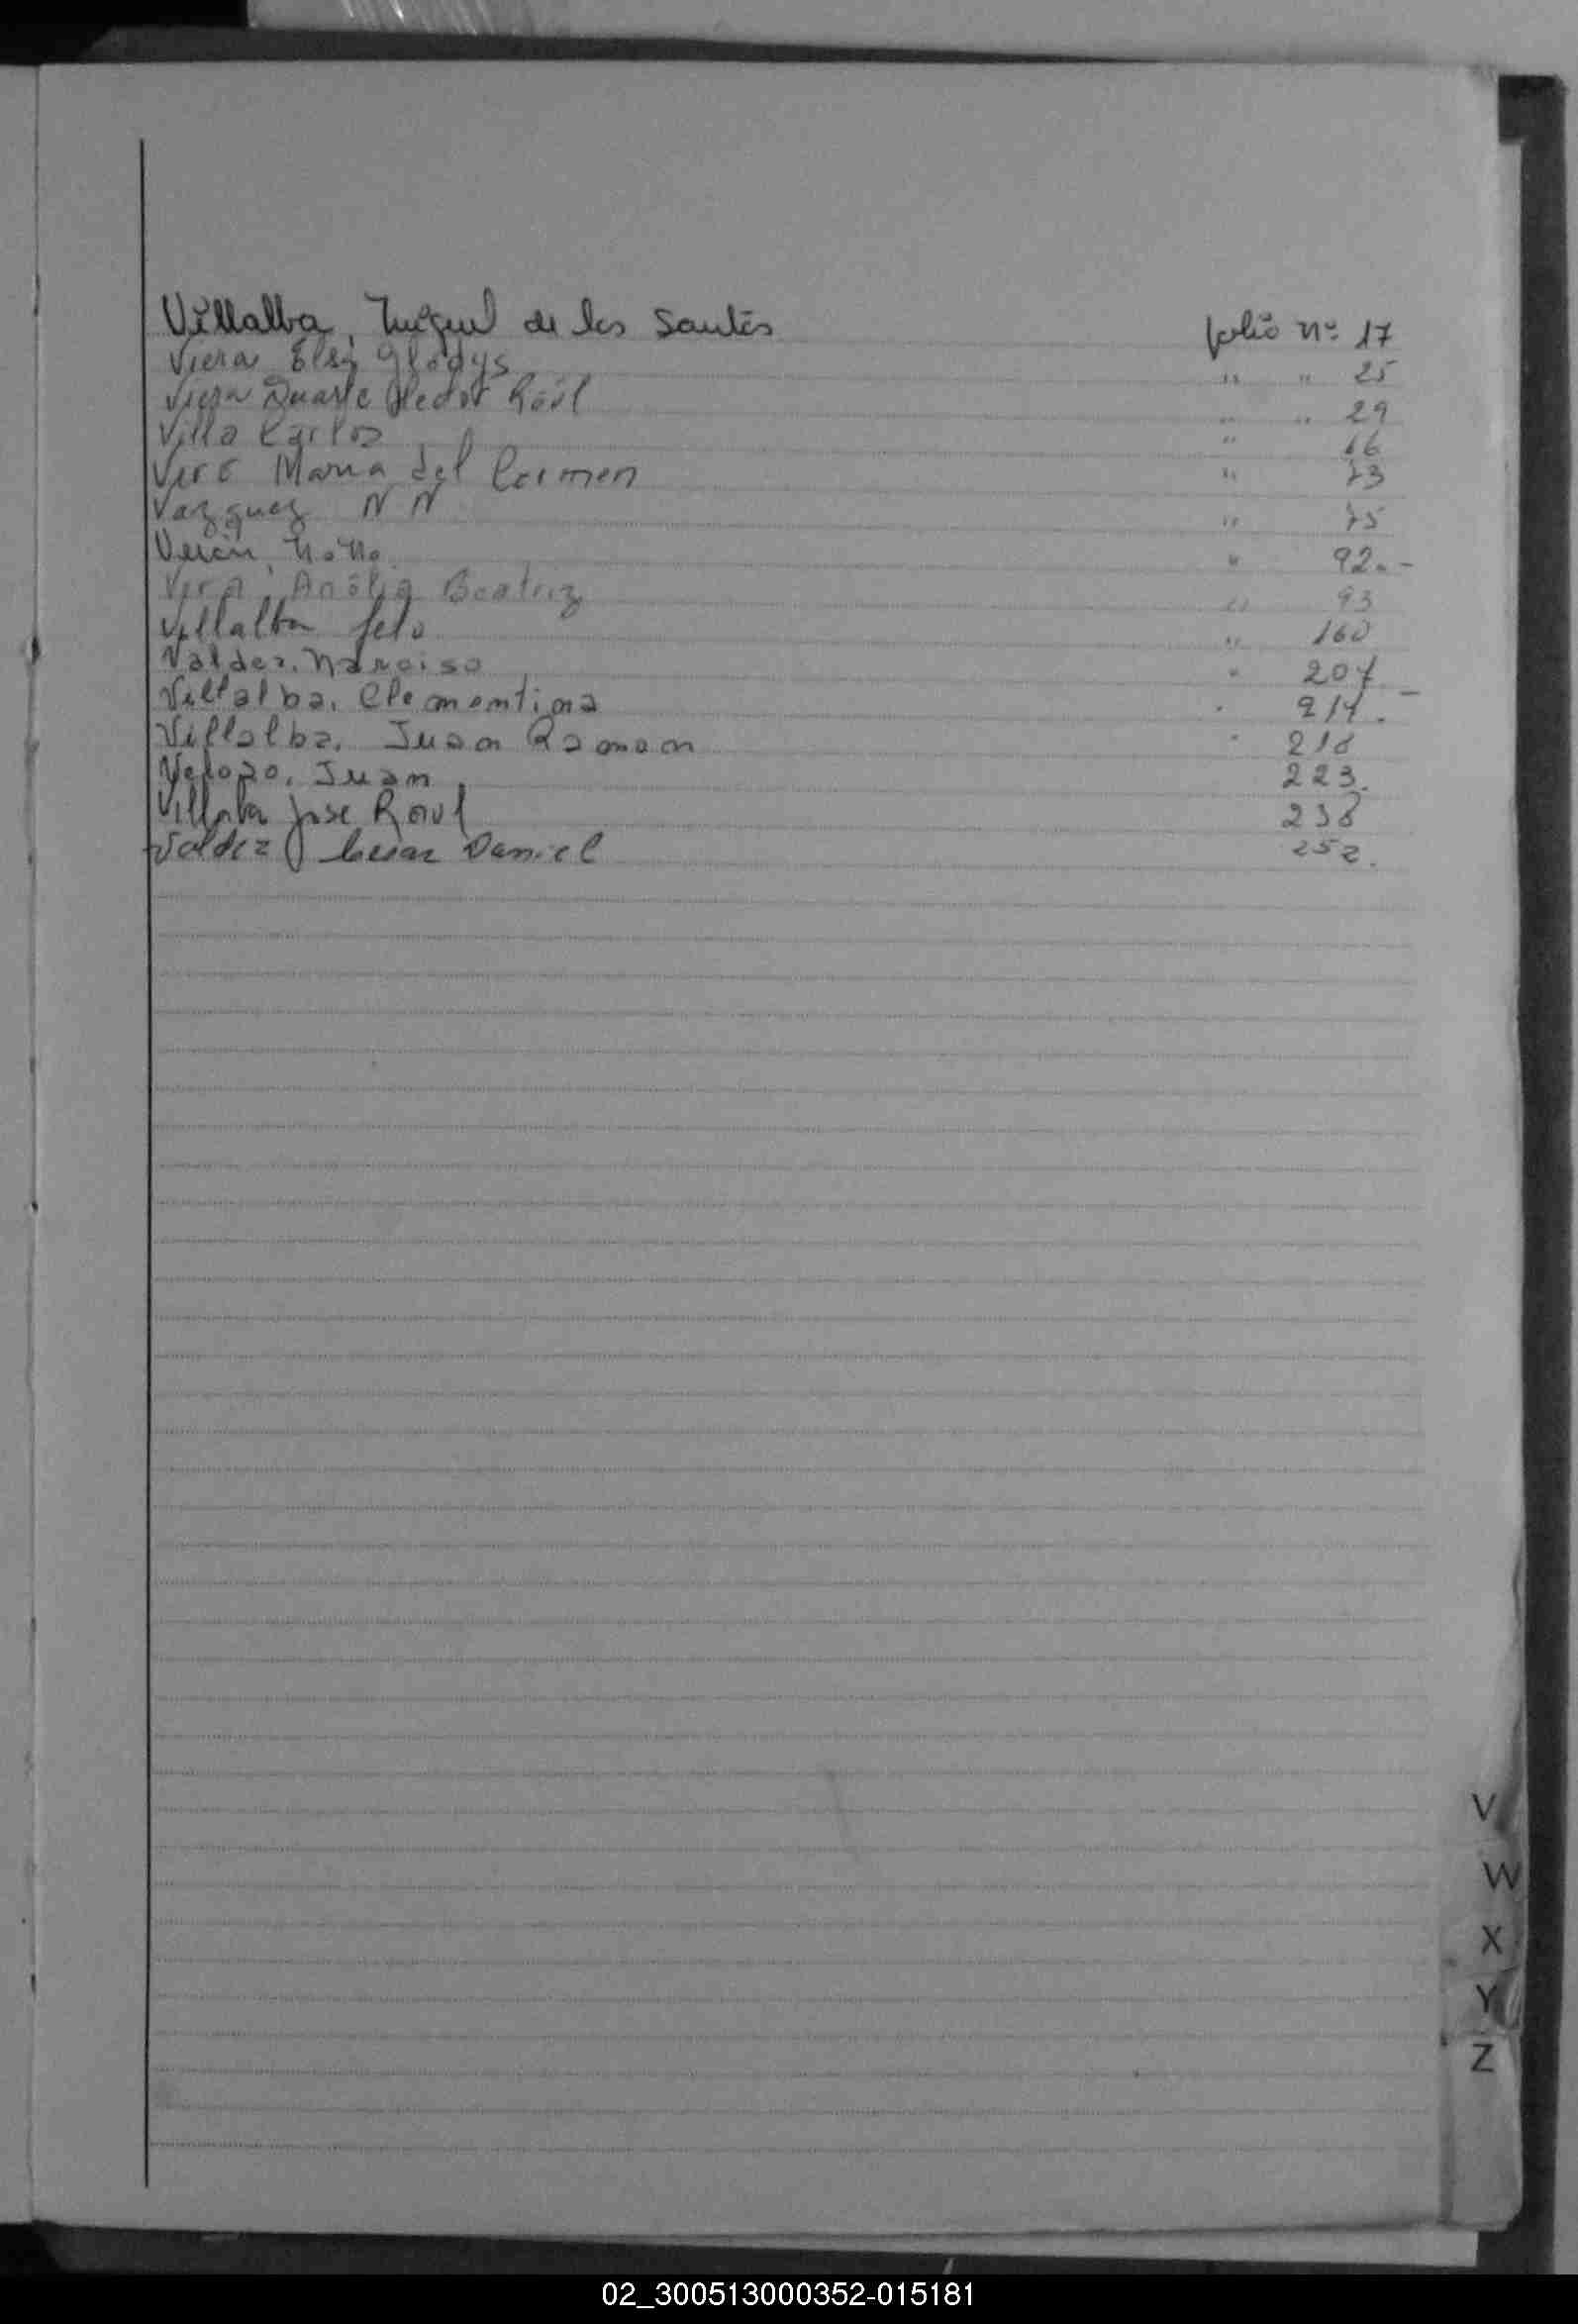 Villalba, Miguel de los Santos folio nº 17
Viera Elsa Gladys " " 25
Viera Duarte Hector Raúl " " 29
Villa Carlos " 66
Vera Maria del Carmen " 73
Vazquez N N " 75
Verón, N.N. " 92.-
Vera, Anália Beatriz " 93
Villalba feto " 160
Valdez. Narciso " 207
Villalba. Clementina " 214.-
Villalba. Juan Ramon " 218
Veloso. Juan 223.
Villalba Jose Raul 238
Valdez Cesar Daniel 252.
V
W
X
Y
Z
02_300513000352-015181